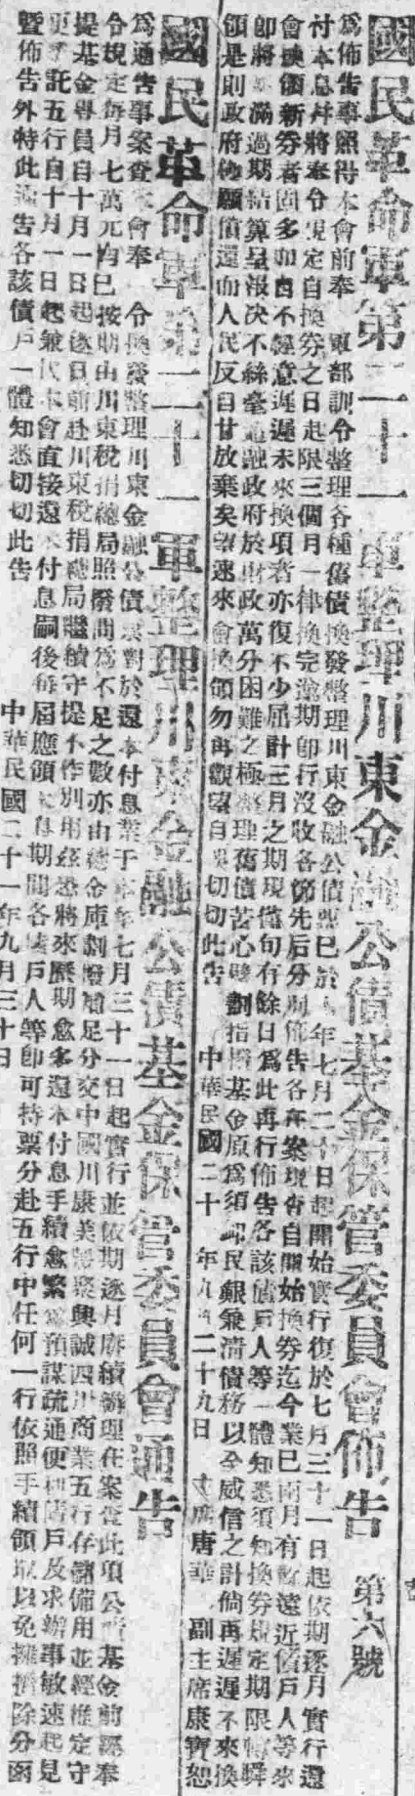 國民革命軍第二十一軍整理川東金融公債基金保管委員會佈告 第六號
為佈告事照得本會前奉 軍部訓令整理各種舊債換發整理川東金融公債業已於本年七月二十日起開始實行復於七月三十一日起依期逐月實行還
付本息并將奉令規定自換券之日起限三個月一律換完逾期即行沒收各節先后分別佈告各在案現查自開始換券迄今業已兩月有餘遠近債戶人等來
會換領新券者固多如自不經意遲遲未來換項者亦復不少屈計三月之期現僅旬有餘日為此再行佈告各該債戶人等一體知悉須知換券規定期限轉瞬
即將 滿過期結算呈報決不絲毫通融政府於財政萬分困難之極整理舊債苦心擘劃指撥基金原為須卹民艱兼清債務以全威信之計倘再遲遲不來換
領是則政府極願償還而人民反自甘放棄矣望速來會換領勿再觀望自 切切此告 中華民國二十 年九月二十九日 主席唐華 副主席康寶恕
國民革命軍第二十一軍整理川東金融公債基金保管委員會通告
為通告事案查本會奉 令換發整理川東金融公債 對於還本付息業于本年七月三十一日起實行並依期逐月賡續辦理在案查此項公債基金前經奉
令規定每月七萬元均已按期由川東稅捐總局照撥間為不足之數亦由總金庫劃撥補足分交中國川康美豐聚興誠四川商業五行存儲備用並經推定守
提基金專員自十月一日起逐日前赴川東稅捐總局繼續守提不作別用茲恐將來歷期愈多還本付息手續愈繁為預謀疏通便利債戶及求辦事敏速起見
更 託五行自十月一日起兼代本會直接還本付息嗣後每屆應領本息期間各債戶人等即可持票分赴五行中任何一行依照手續領取以免擁擠除分函
暨佈告外特此通告各該債戶一體知悉切切此告 中華民國二十一年九月三十日